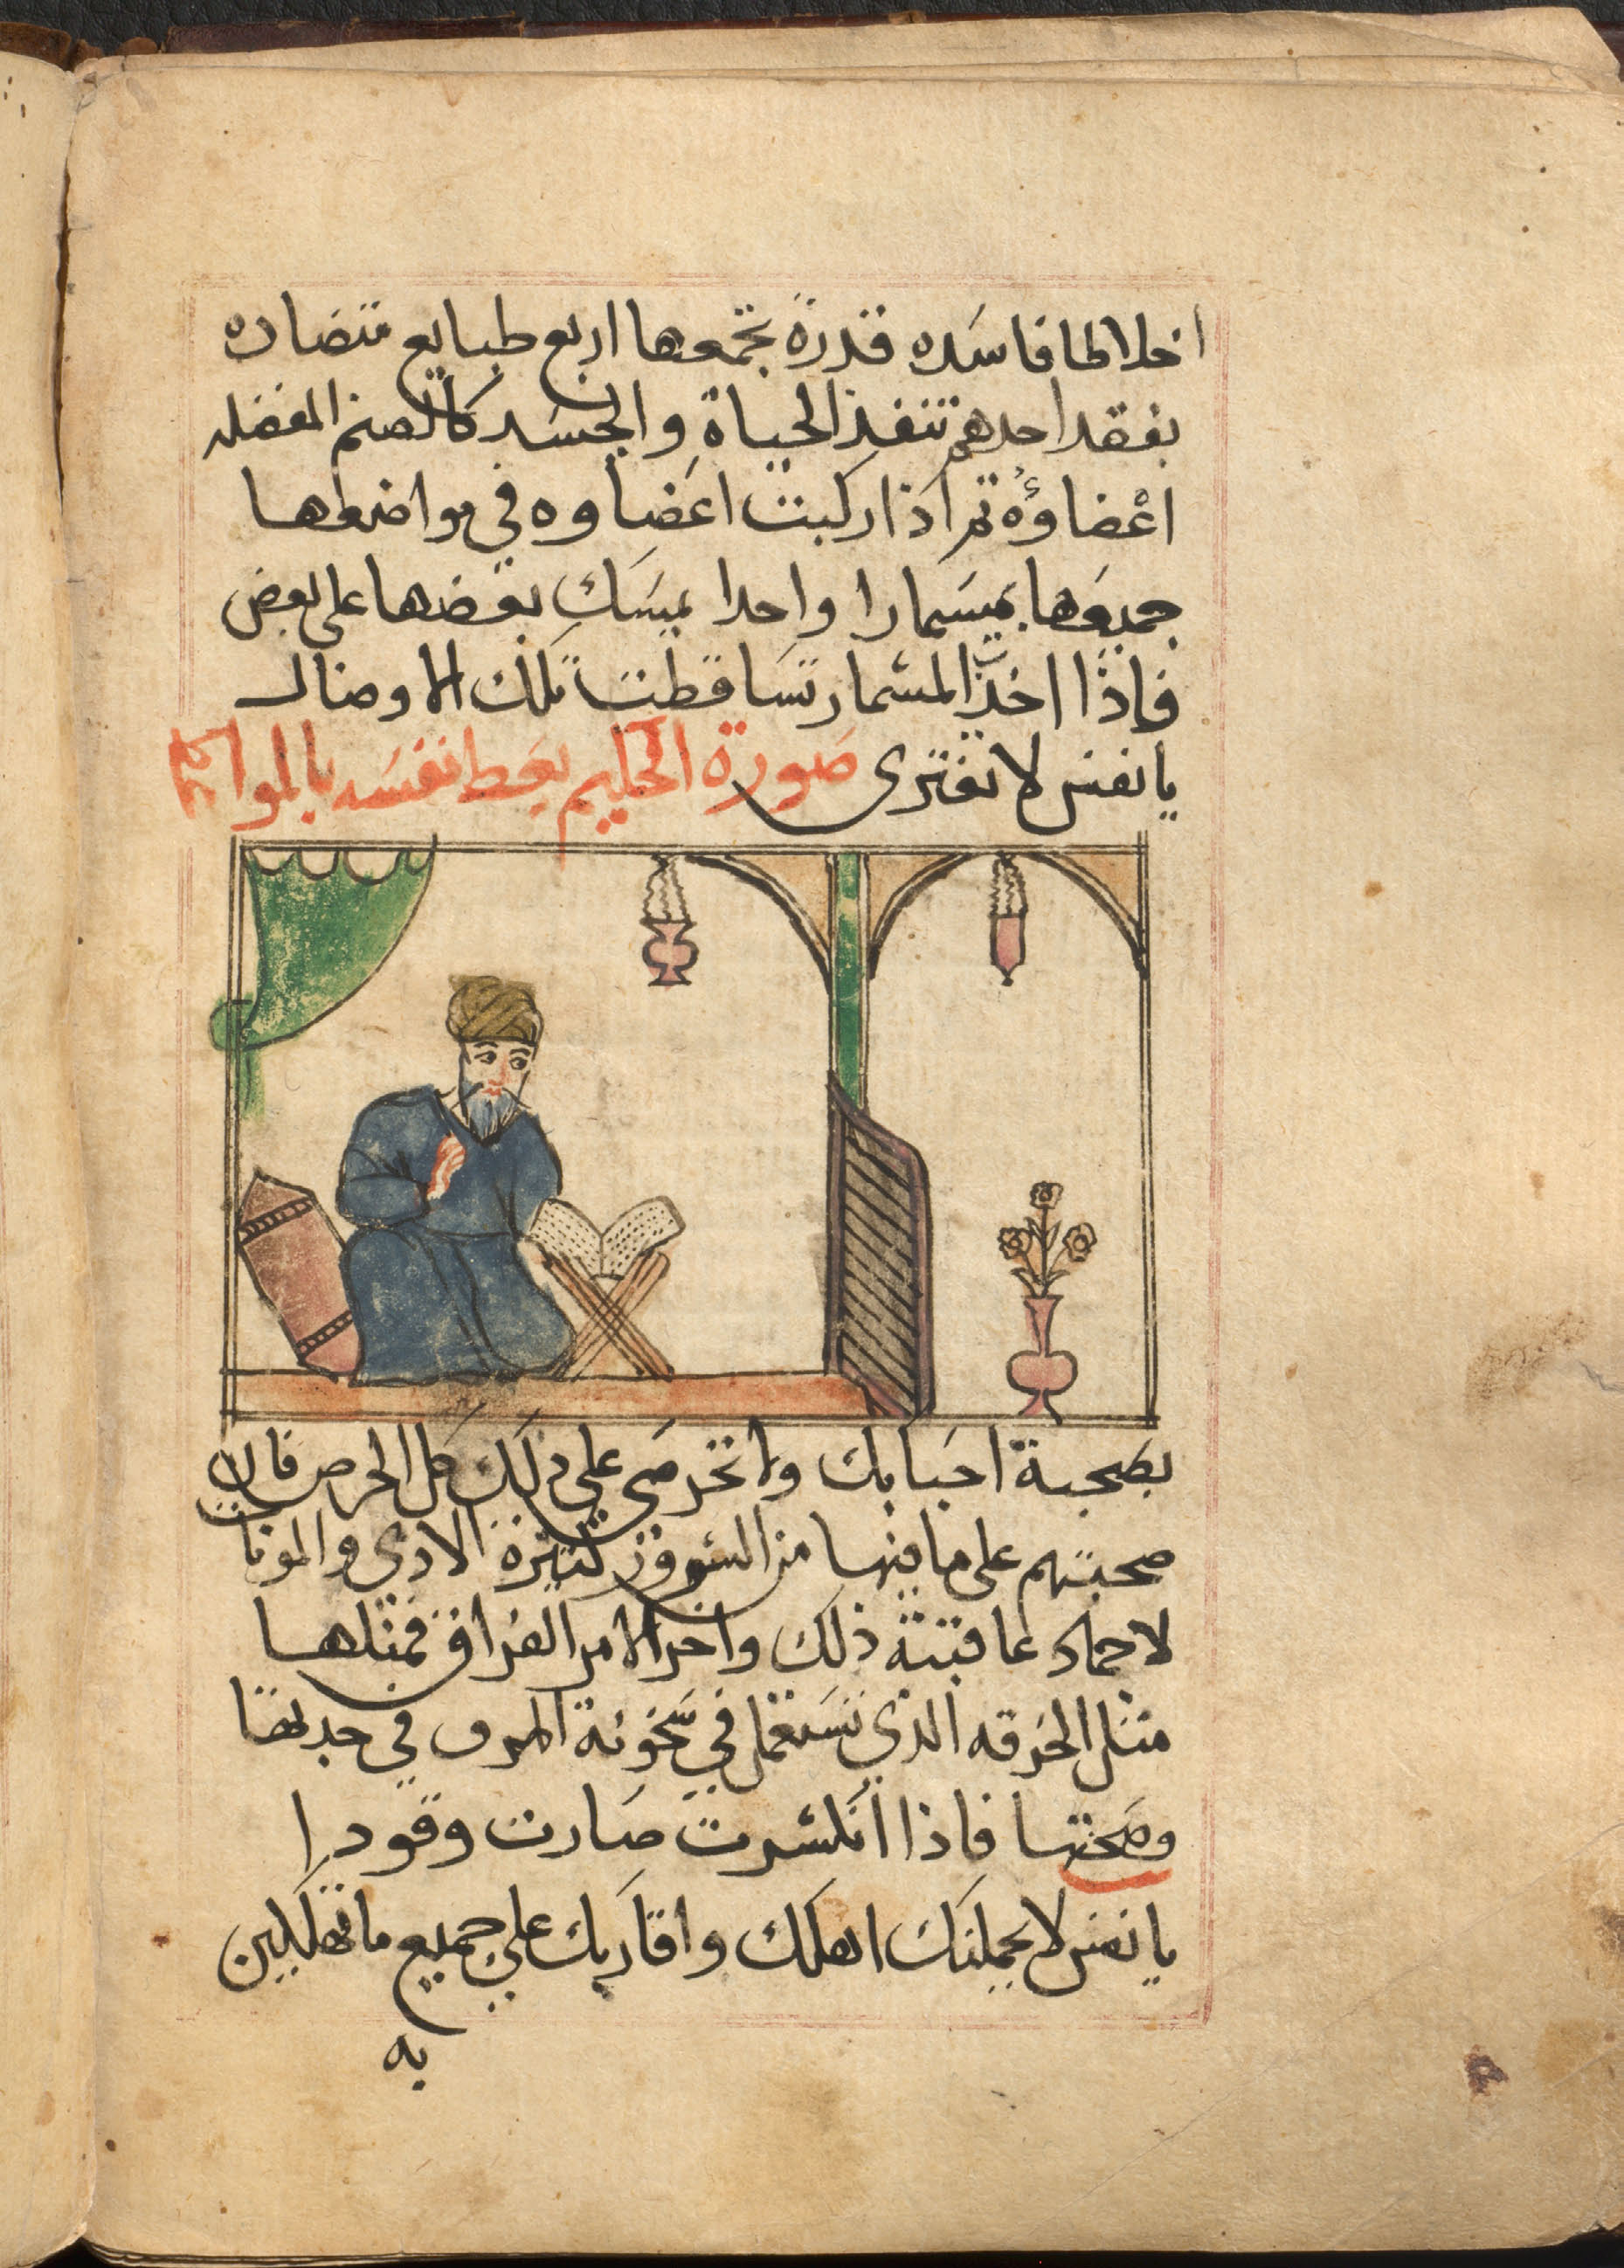 اخلاطا فاسده قذرة تجمعها اربع طبايع متضاده
بفقد احدهم تنفذ الحياة والجسد كالصنم المفضله
اعْضاوُه ثم اذا ركبت اعضاوه في مواضعها
جميعها بميسمارا واحدا يمسك بعضها على بعض
فاذا اخذ المسمار تساقطت تلك الاوصال
يا نفس لا تغتري صورة الحكيم يعظ نفسه بالمواعظ
بصحبة احبابك ولا تحرصي علي ذلك كل الحرص فان
صحبتهم على ما فيها من السرور كثيرة الادي والمونات
لاحماد عاقبته ذلك واخر الامر الفراق فمثلها
مثل المغرفه الذي تستعمل في سخونة المرق في جدتها
وصحتها فاذا انكسرت صارت وقودا
يا نفس لا يحملنك اهلك واقاربك علي جميع ما تهلكين
به